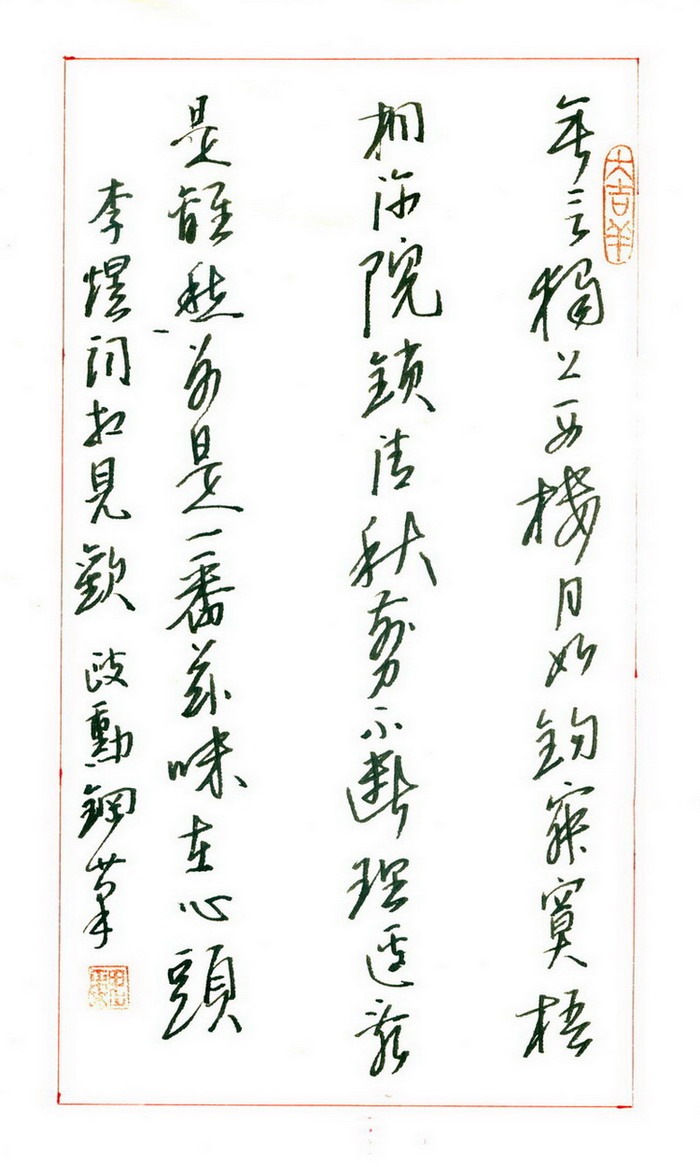 大吉羊
無言獨上西樓月如鉤寂寞梧
桐深院鎖清秋剪不斷理還亂
是離愁別是一番滋味在心頭
李煜詞相見歡 勳鋼筆